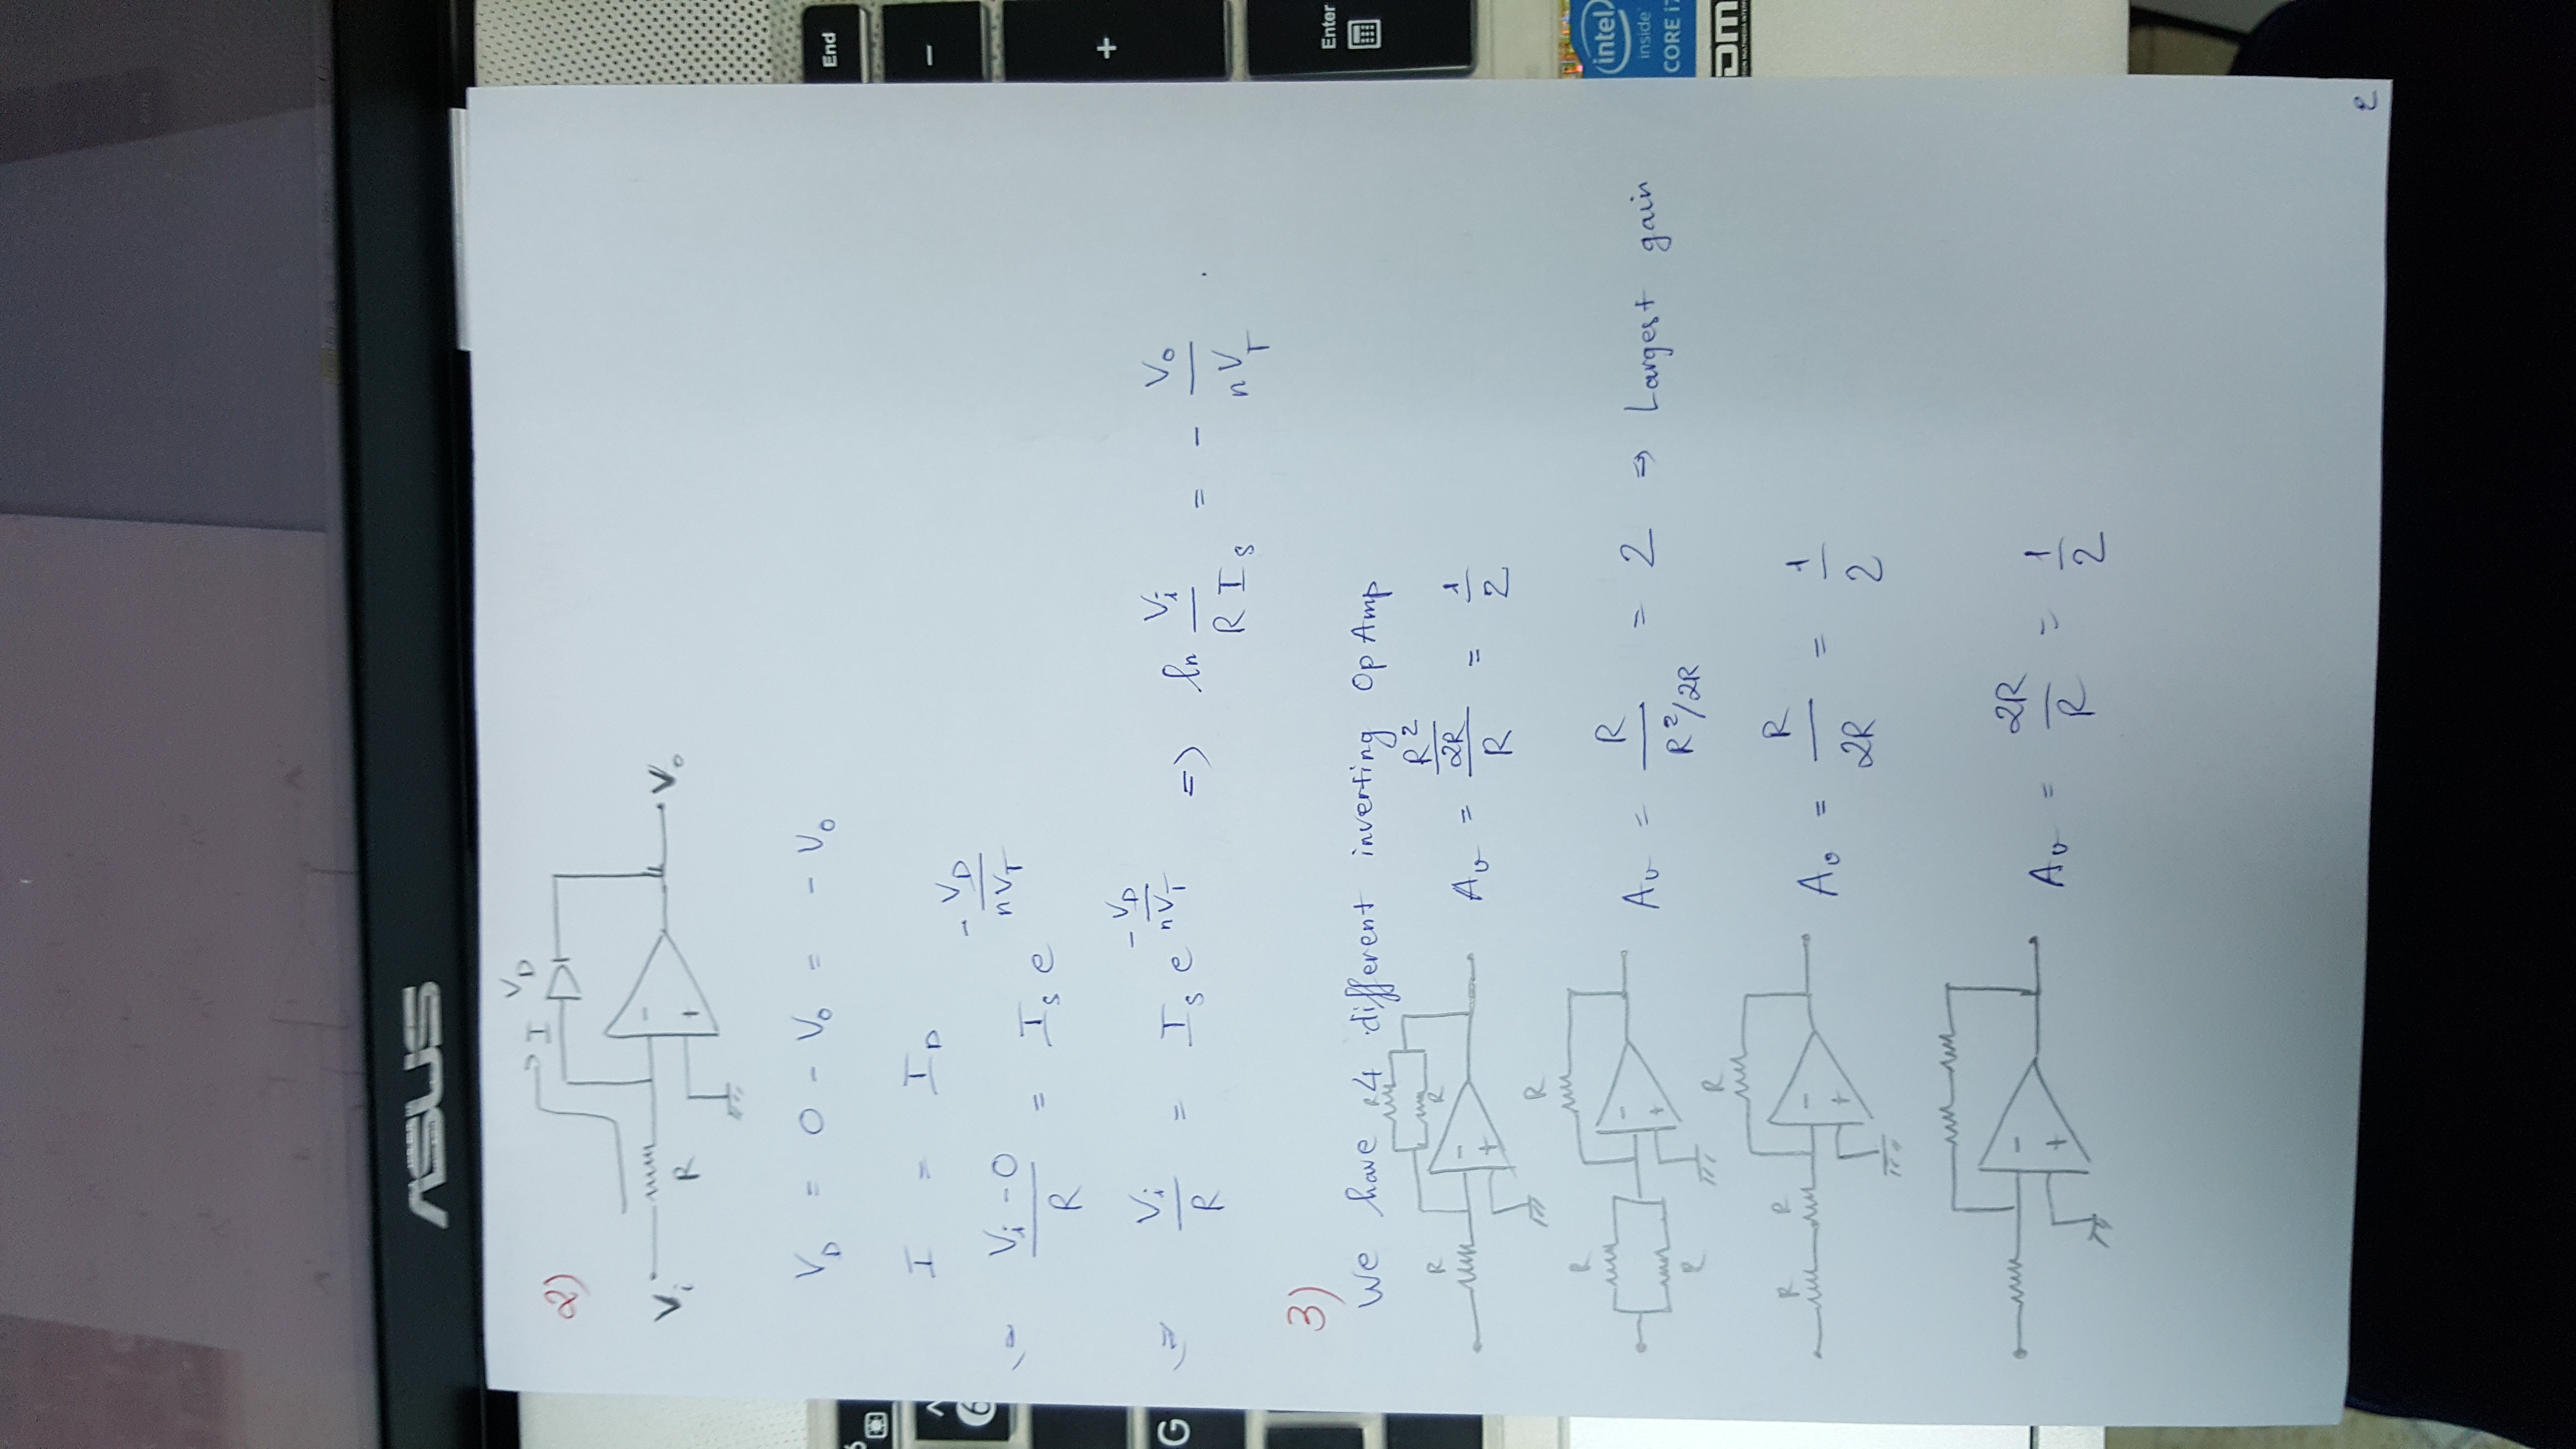 ASUS
2)
I V_D
V_i R - + V_o
V_D = 0 - V_o = - V_o
I = I_D
(V_i - 0)/R = I_s e^(-V_D/(nV_T))
⇒ V_i/R = I_s e^(-V_D/(nV_T)) => ln V_i/(R I_s) = - V_o/(nV_T) .
3)
We have 4 different inverting Op Amp
R R R - + A_v = (R²/2R)/R = 1/2
R R R - + A_v = R/(R²/2R) = 2 ⇒ Largest gain
R R R - + A_v = R/2R = 1/2
- + A_v = 2R/R = 1/2
2
End
-
+
Enter
6
G
intel
inside
CORE i7